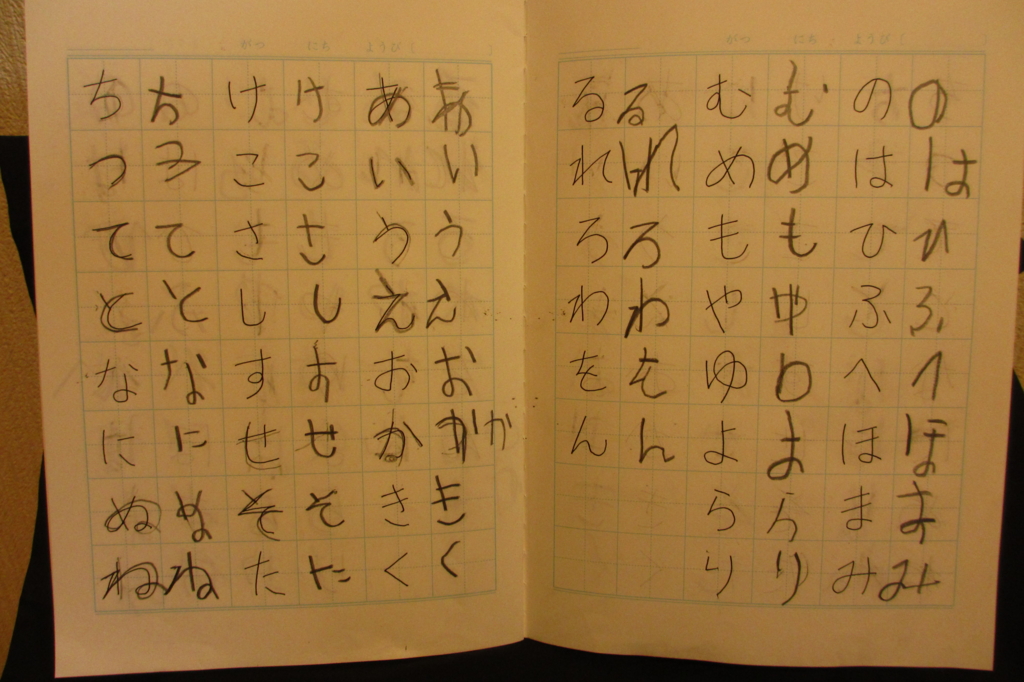 がつ にち ようび
あいうえおかかきく
あいうえおかきく
けこさしすせそた
けこさしすせそた
ちつてとなにぬね
ちつてとなにぬね
がつ にち ようび
のはひふへほまみ
のはひふへほまみ
むめもやゆよらり
むめもやゆよらり
るれろわをん
るれろわをん